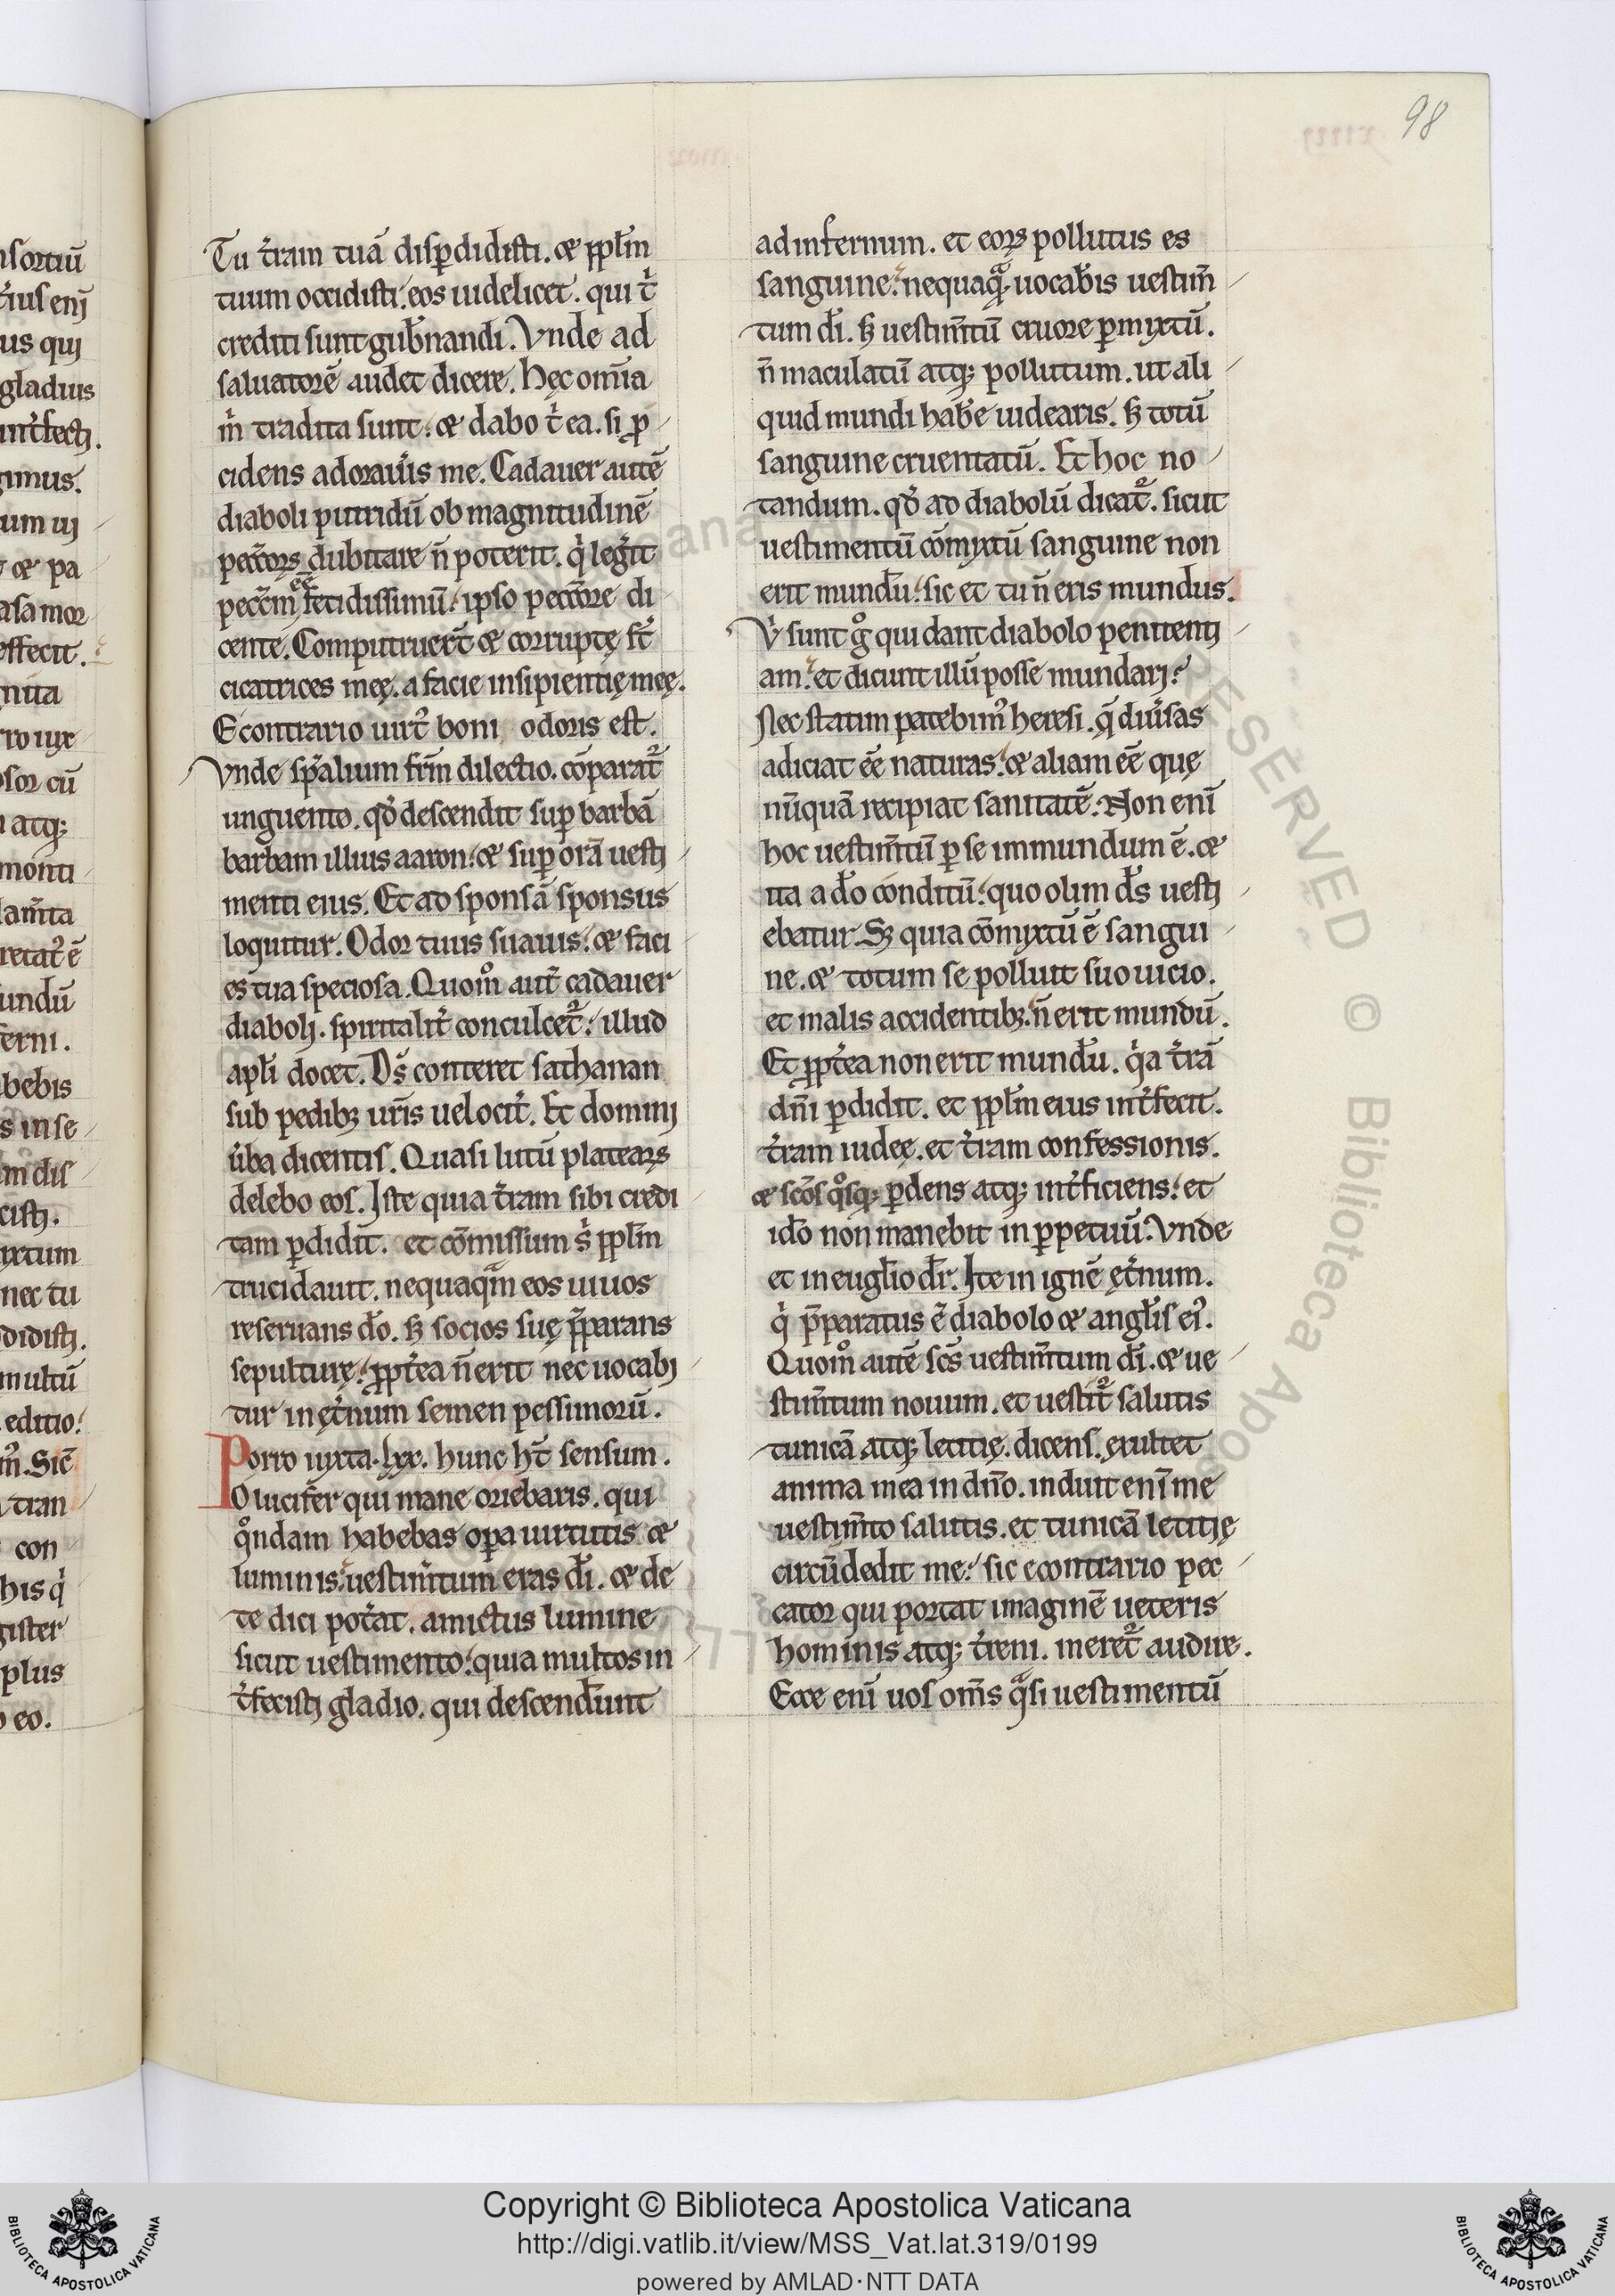 98
Tu t̉ram tuā disꝑdidisti. ⁊ pplm̄
tuum occidisti. eos uidelicet. qui t̉
crediti sunt gub̄nandi. Vnde ad
saluatorē audet dicere. Hęc om̄ia
m̉ tradita sunt. ⁊ dabo t̉ ea. si ꝓ
cidens adoraủis me. Cadauer autē
diaboli putridū ob magnitudinē
peccōꝝ dubitare n̄ poterit. q̉ leḡit
pecc̄m eē fetidissimū. ipso peccōre di
cente. Computruer̄t ⁊ corruptę st̄
cicatrices meę. a facie insipientię meę.
Econtrario uirt᷒ boni odoris est.
Vnde sp̄alium fr̄m dilectio. cōparat᷑
unguento. qd̓ descendit suꝑ barbā
barbam illius aaron. ⁊ suꝑ orā uesti
menti eius. Et ad sponsā sponsus
loquitur. Odor tuus suauis. ⁊ faci
es tua speciosa. Quom̊ aut̄ cadauer
diaboli. spiritalit̉ conculcet᷑. illud
apl̄i docet. Ds̄ conteret sathanan
sub pedibꝫ ur̄is uelocit̉. Et domini
ủba dicentis. Quasi lutū plateaꝝ
delebo eos. Iste quia t̉ram sibi credi
tam ꝑdidit. et cōmissum s̉ pplm̄
trucidauit. nequaqᷓm eos uiuos
reseruans dō. sꝫ socios suę p̄parans
sepulturę. ꝓpt̉ea n̄ erit nec uocabi
tur in ęt̉num semen pessimorū.
Porro iuxta .lxx. hunc ht̄ sensum.
O lucifer qui mane oriebaris. qui
qͦndam habebas oꝑa uirtutis ⁊
luminis. uestim̄tum eras dī. ⁊ de
te dici pot̉at. amictus lumine
sicut uestimento. quia multos in
t̉fecisti gladio. qui descend̄unt
ad infernum. et eoꝝ pollutus es
sanguine. nequaqᷓ uocab̄is uestim̄
tum dī. sꝫ uestim̄tū cruore ꝑmixtū.
n̄ maculatū atqꝫ pollutum. ut ali
quid mundi hab̄e uidearis. sꝫ totū
sanguine cruentatū. Et hoc no
tandum. qd̓ ad diabolū dicat᷑. sicut
uestimentū cōmyxtū sanguine non
erit mundū. sic et tu n̄ eris mundus.
V̉ sunt gͦ qui dant diabolo penitenti
am. et dicunt illū posse mundari?
Nec statim patebim᷒ heresi. q̄ diủsas
adiciat eē naturas. ⁊ aliam eē quę
nūquā recipiat sanitatē. Non enī
hoc uestim̄tū ꝑ se immundum ē. ⁊
ita a dō conditū. quo olim ds̄ uesti
ebatur. Sꝫ quia cōmyxtū ē sangui
ne. ⁊ totum se polluit suo uicio.
et malis accidentibꝫ. n̄ erit mundū.
Et ꝓpt̉ea non erit mundū. q̉a t̉rā
dn̄i ꝑdidit. et pplm̄ eius int̉fecit.
t̉ram iudeę. et t̉ram confessionis.
⁊ scōs qͦsqꝫ ꝑdens atqꝫ int̉ficiens. et
idō non manebit in ꝑpetuū. Vnde
et in eugl̄io dr̄. Ite in ignē ęt̉num.
q̉ p̄paratus ē diabolo ⁊ angl̄is ei᷒.
Quom̊ autē scs̄ uestim̄tum dī. ⁊ ue
stim̄tum nouum. et uestit᷑ salutis
tunicā atqꝫ letitię. dicens. exultet
anima mea in dn̄o. induit enī me
uestim̄to salutis. et tunicā letitię
circūdedit me. sic econtrario pec
cator qui portat imaginē ueteris
hominis atqꝫ t̉reni. meret᷑ audire.
Ecce enī uos om̄s qᷓsi uestimentū
Copyright © Biblioteca Apostolica Vaticana
http://digi.vatlib.it/view/MSS_Vat.lat.319/0199
powered by AMLAD·NTT DATA